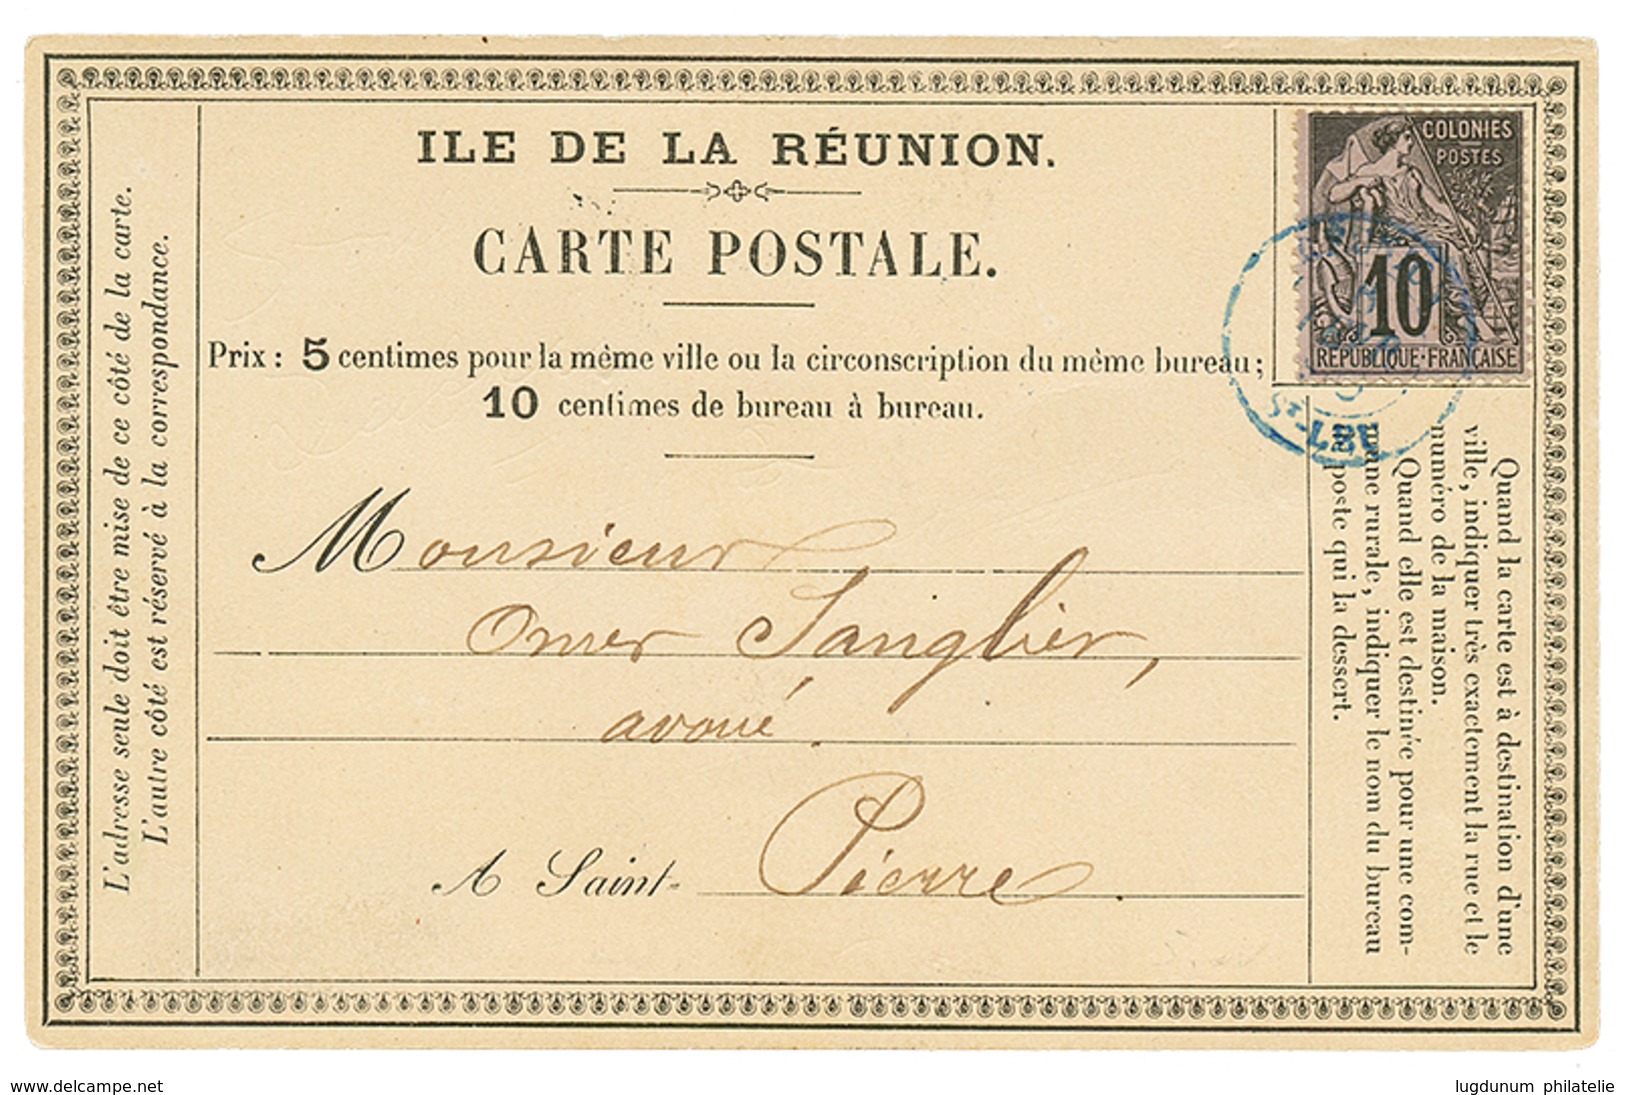 ILE DE LA RÉUNION.
CARTE POSTALE.
Prix : 5 centimes pour la même ville ou la circonscription du même bureau ;
10 centimes de bureau à bureau.
Monsieur
Omer Sanglier,
avoué
A Saint- Pierre.
L'adresse seule doit être mise de ce côté de la carte.
L'autre côté est réservé à la correspondance.
COLONIES
POSTES
10
REPUBLIQUE·FRANÇAISE
ST-LEU
Quand la carte est à destination d'une
ville, indiquer très exactement la rue et le
numéro de la maison.
Quand elle est destinée pour une com-
mune rurale, indiquer le nom du bureau
poste qui la dessert.
www.delcampe.net
lugdunum philatelie